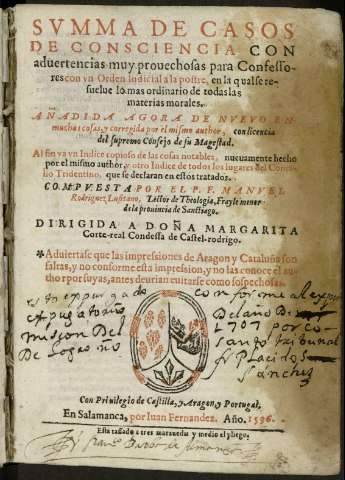 SVMMA DE CASOS
DE CONSCIENCIA CON
aduertencias muy prouechosas para Confesso-
res con vn Orden Iudicial a la postre, en la qual se re-
suelue lo mas ordinario de todas las
materias morales.
AÑADIDA AGORA DE NVEVO EN
muchas cosas, y corregida por el mismo author, con licencia
del supremo Consejo de su Magestad.
Al fin va vn Indice copioso de las cosas notables, nueuamente hecho
por el mismo author, y otro Indice de todos los lugares del Conci-
lio Tridentino, que se declaran en estos tratados.
COMPVESTA POR EL P. F. MANVEL
Rodriguez, Lusitano, Lector de Theologia, Frayle menor
de la prouincia de Sanctiago.
DIRIGIDA A DOÑA MARGARITA
Corte-real Condessa de Castel-rodrigo.
Aduiertase que las impresiones de Aragon y Cataluña son
falsas, y no conforme esta impression, y no las conoce el au-
thor por suyas, antes deurian euitarse como sospechosas.
expurgado conforme al
expurgatorio Del año De
1707 por co-
mision Del santo tribunal
De Logroño
fr Placido
Sanchez
Con Priuilegio de Castilla, y Aragon, y Portugal,
En Salamanca, por Iuan Fernandez. Año. 1596.
Esta tassado a tres marauedis y medio el pliego.